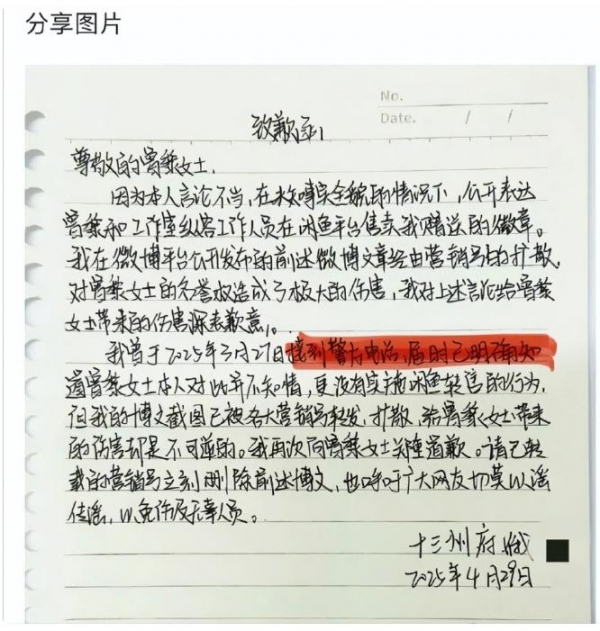 分享图片
No.
Date. / /
致歉函
尊敬的曾黎女士.
因为本人言论不当,在未核实全貌的情况下,公开表达
曾黎和工作室纵容工作人员在闲鱼平台售卖我赠送的徽章。
我在微博平台公开发布的前述微博文章经由营销号的扩散,
对曾黎女士的名誉权造成了极大的伤害,我对上述言论给曾黎
女士带来的伤害深表歉意。
我曾于2025年3月27日接到警方电话,届时已明确知
道曾黎女士本人对此并不知情,更没有实施闲鱼转售的行为,
但我的博文截图已被各大营销号转发、扩散,给曾黎女士带来
的伤害却是不可逆的。我再次向曾黎女士郑重道歉。请已转
载的营销号立刻删除前述博文,也呼吁广大网友切莫以谣
传谣,以免伤及无辜人员。
十三州府
2025年4月29日